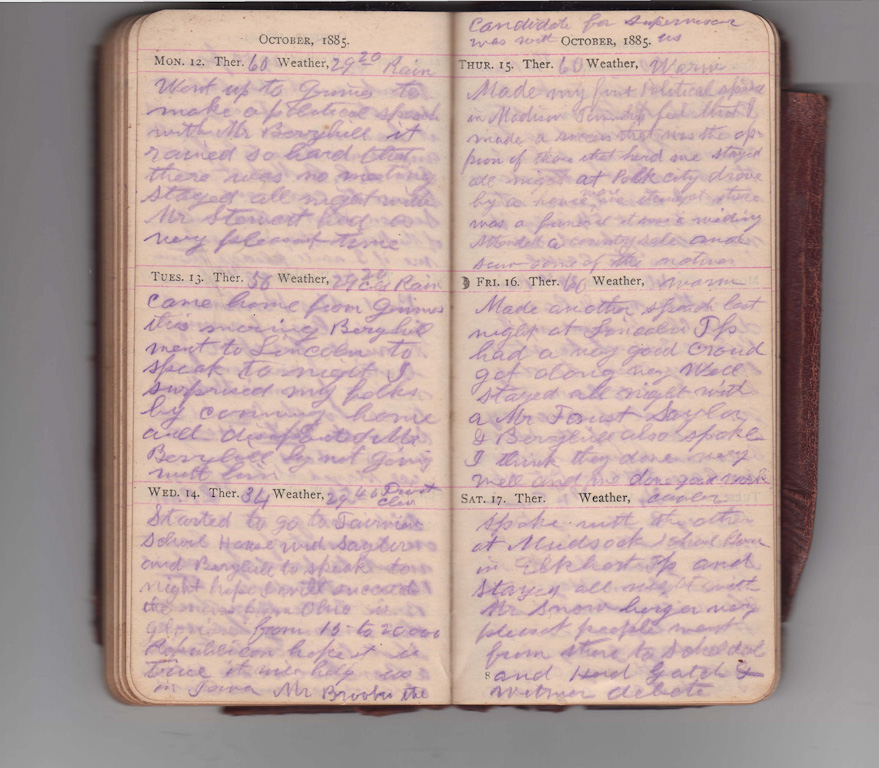 OCTOBER, 1885.
MON. 12. Ther. 60 Weather, 29 20 Rain
Went up to Grimes to
make a political speech
with Mr Berryhill it
rained so hard that
there was no meeting
stayed all night with
Mr Stewart had a
very pleasant time
TUES. 13. Ther. 56 Weather, 29 20 Rain
Came home from Grimes
this morning Berryhill
went to Lincoln to
speak to night I
surprised my folks
by coming home
and disapointed Mr
Berryhill by not going
with him
WED. 14. Ther. 34 Weather, 29 40 Frost
Clear
Started to go to Fairview
School House with Saylor
and Berryhill to speak to
night hope I will succeed
the news from Ohio is
glorious from 15 to 20 000
Republican hope it is
true it will help us
in Iowa Mr Brooks the
candidate for supervisor
was with us
OCTOBER, 1885.
THUR. 15. Ther. 60 Weather, Warm
Made my first Political speech
in Madison Township feel that I
made a success that was the op-
inion of those that herd me stayed
all night at Polk city drove
by a house where there
was a funeral
Attended a county sale and
saw some of the natives
FRI. 16. Ther. 60 Weather, warm
Made another speech last
night at Lincoln Tp
had a very good crowd
got along very Well
stayed all night with
a Mr Forust Saylor
& Berryhill also spoke
I think they done very
well and we done good work
SAT. 17. Ther. Weather,
spoke with the others
at Mudsock School House
in Elkhart Tp and
Stayed all night with
Mr Snowberger very
pleasent people went
from there to
and Herd Gatch &
Witmer debate